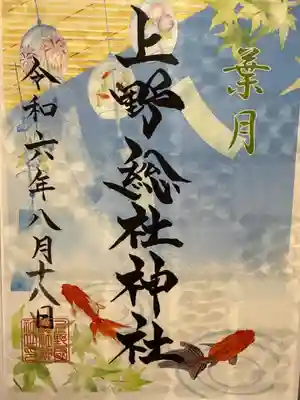 葉月
上野總社神社
令和六年八月十八日